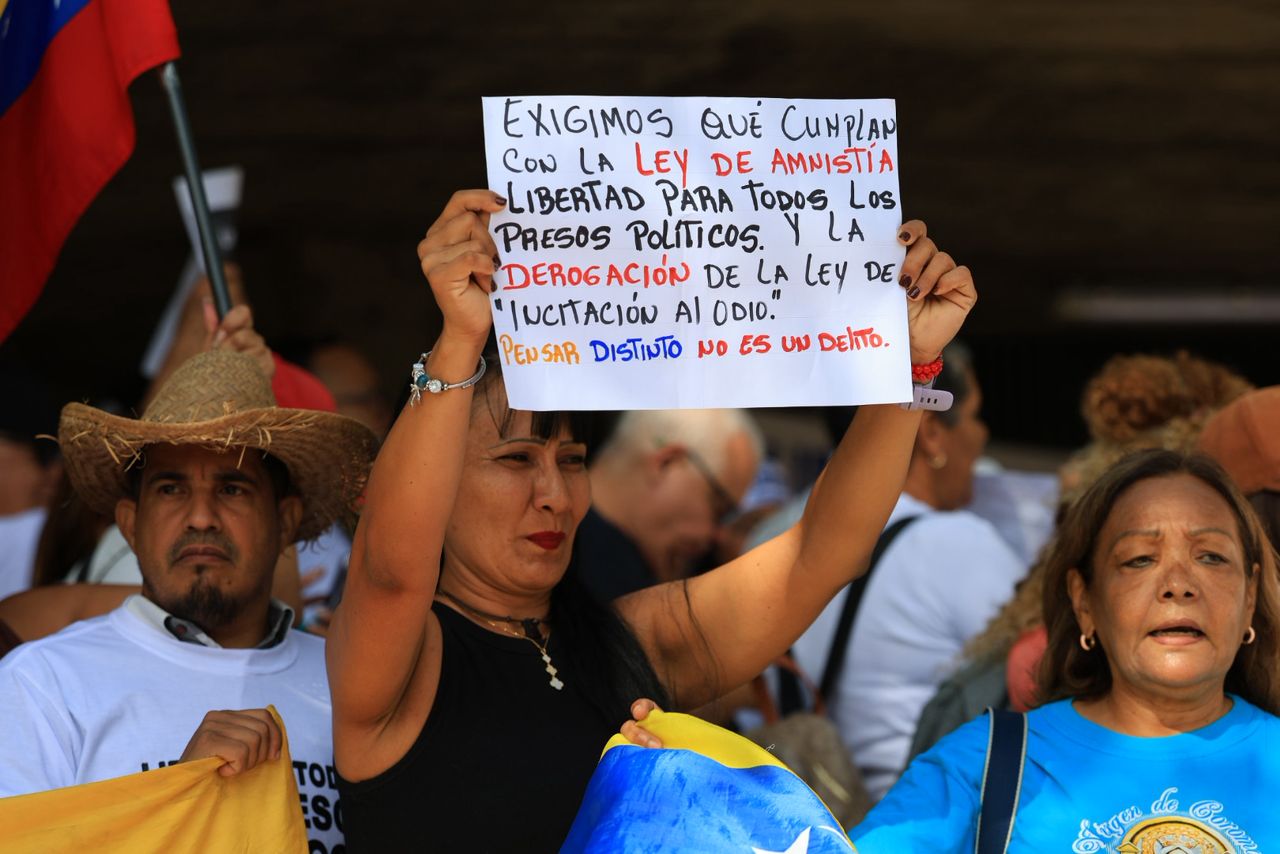 EXIGIMOS QUÉ CUMPLAN
CON LA LEY DE AMNISTÍA
LIBERTAD PARA TODOS LOS
PRESOS POLÍTICOS. Y LA
DEROGACIÓN DE LA LEY DE
"INCITACIÓN Al ODIO."
PENSAR DISTINTO NO ES UN DELITO.
TOD
Virgen de